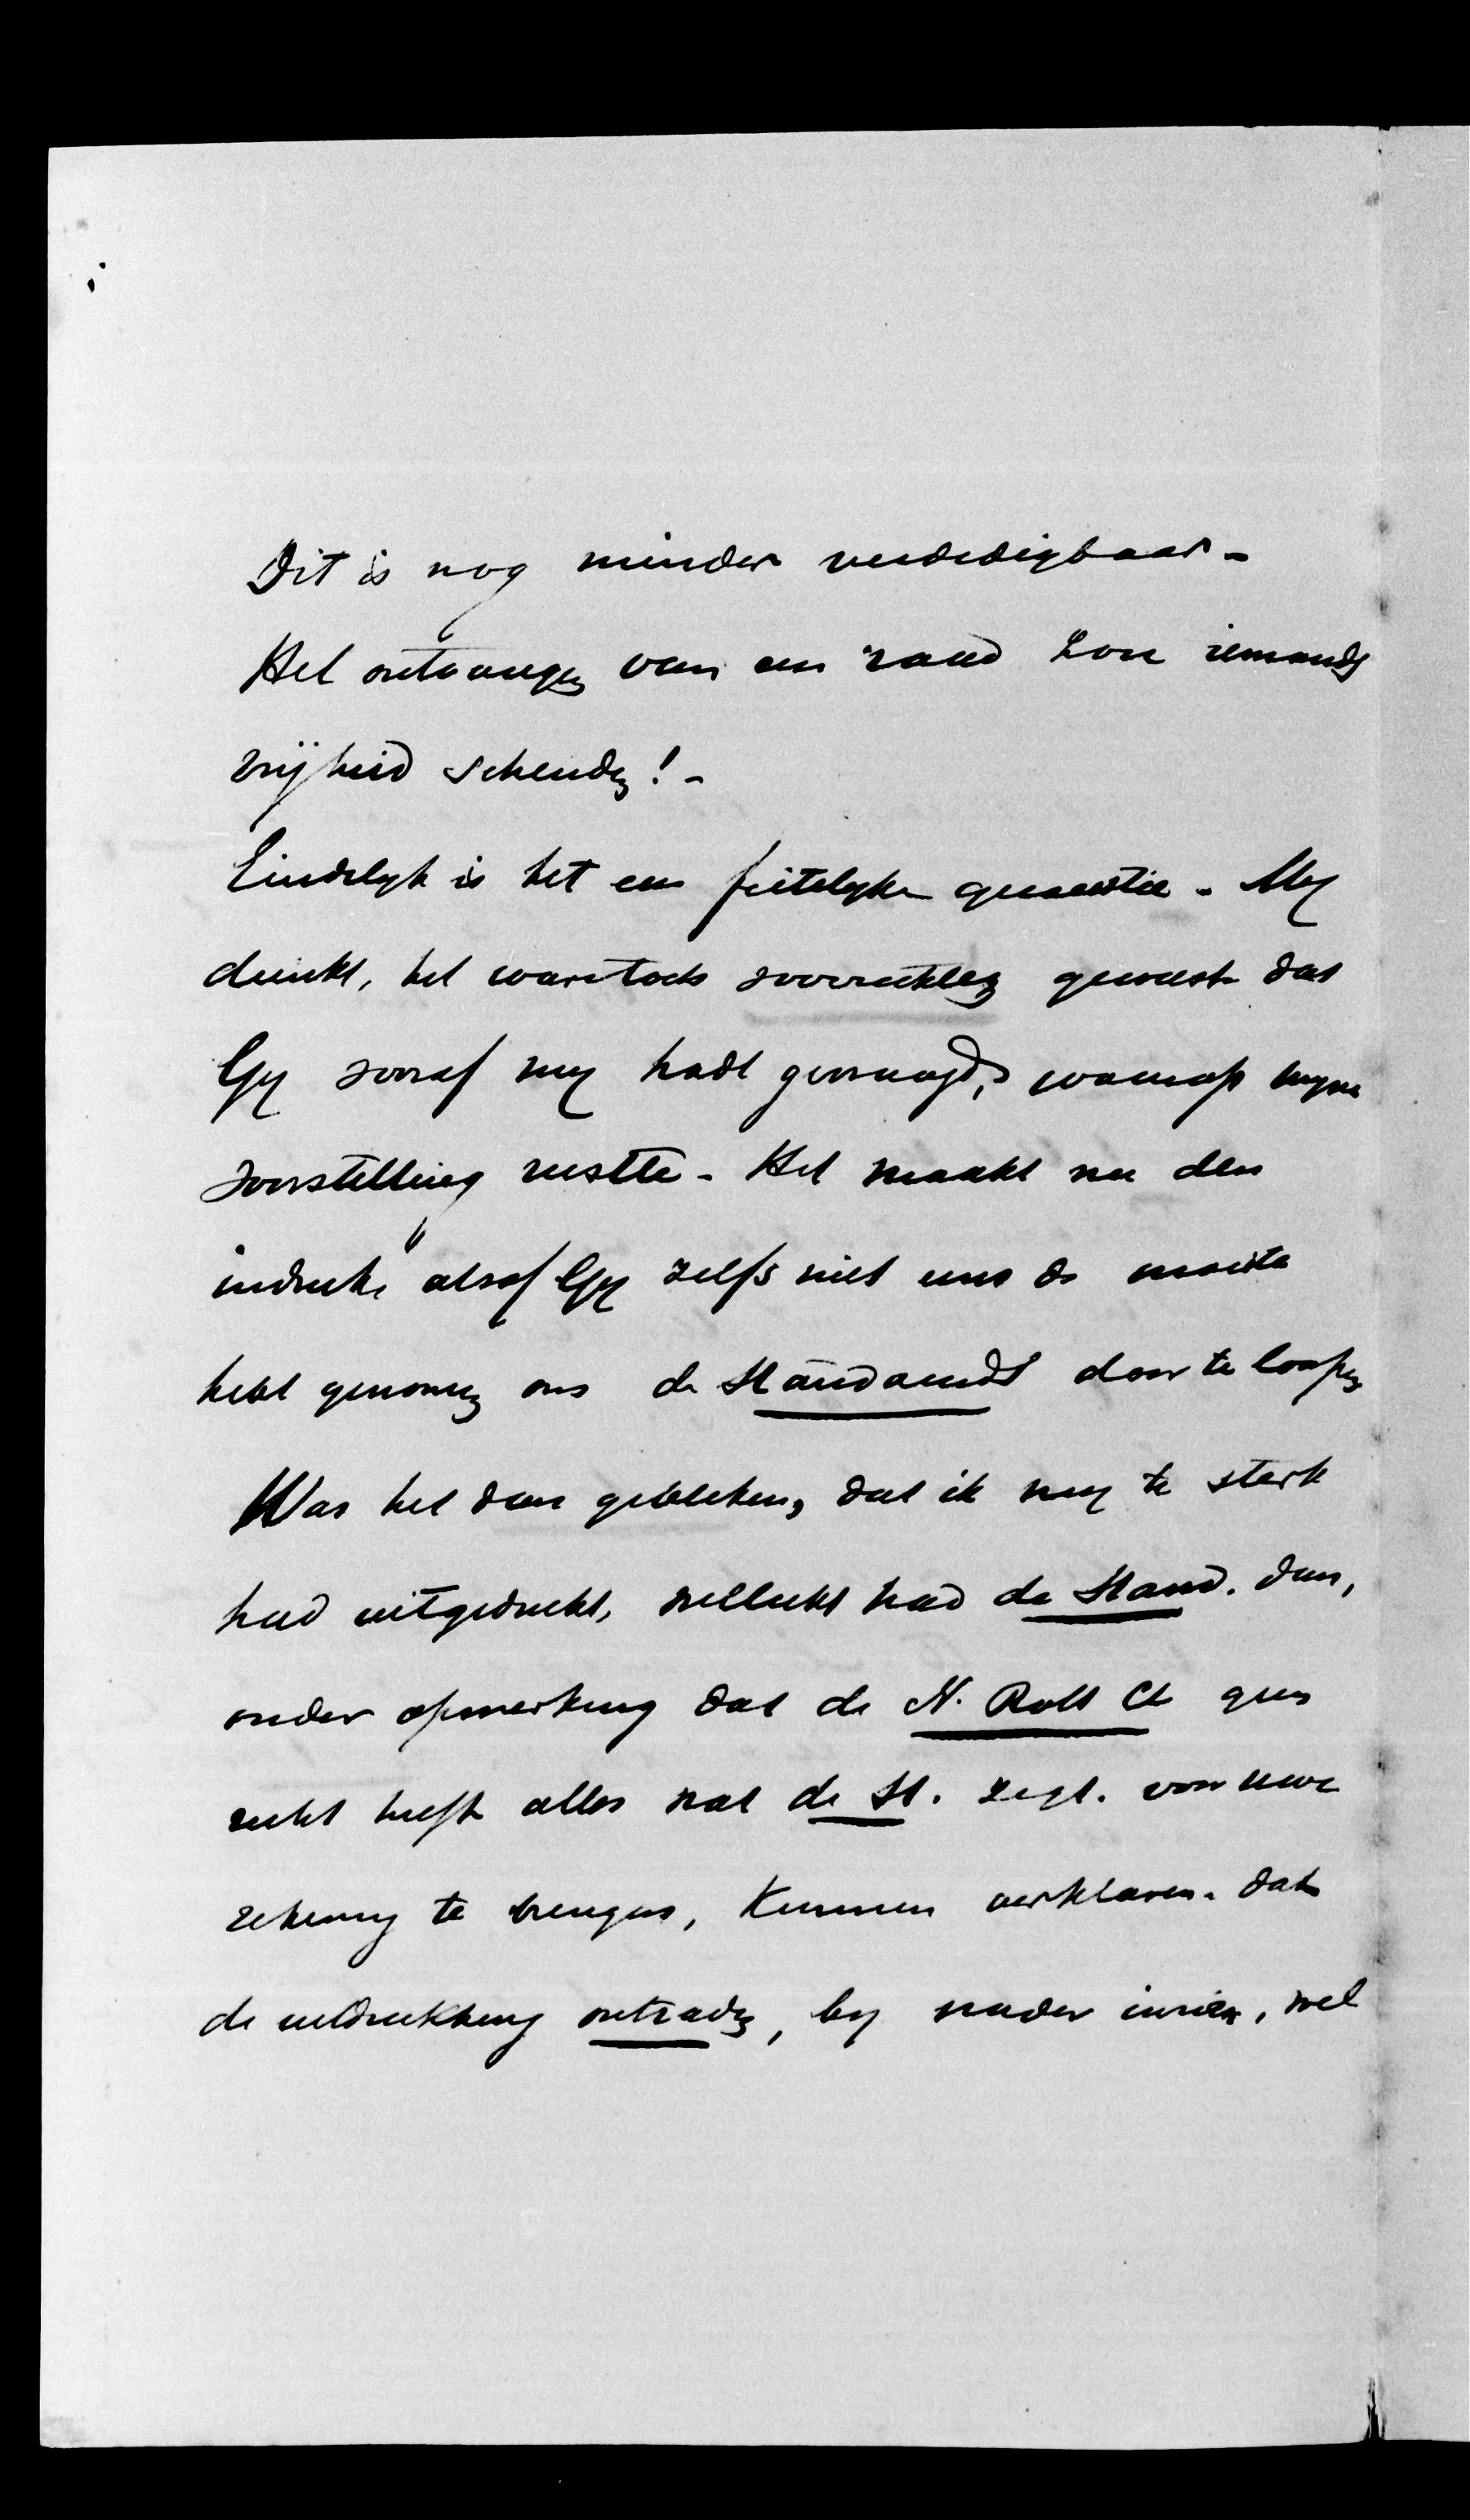 Dit is nog minder verdedigbaar -
Het ontvangen van een raad zou iemands
vrijheid schenden! -
Eindelyk is het een feitelyke quaestie - My
dunkt, het ware toch voorzichtig geweest dat
Gy vooraf my hadt gevraagd, waarop myne
voorstelling rustte - Het maakt nu den
indruk alsof Gy zelfs niet eens de moeite
hebt genomen ons de Standaard door te loopen
Was het dan gebleken, dat ik my te sterk
had uitgedrukt, wellicht had de Stand. dan,
onder opmerking dat de N. Rott Ct geen
recht heeft alles wat de St. zegt. voor uwe
rekening te brengen, kunnen verklaren. dat
de uitdrukking ontraden, by nader inzien, wel